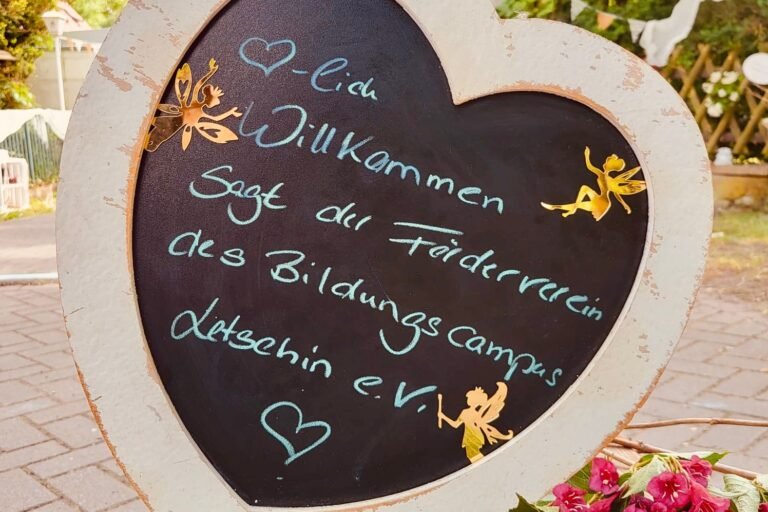 ♡-lich
Willkommen
sagt der Förderverein
des Bildungscampus
Letschin e.V.
♡